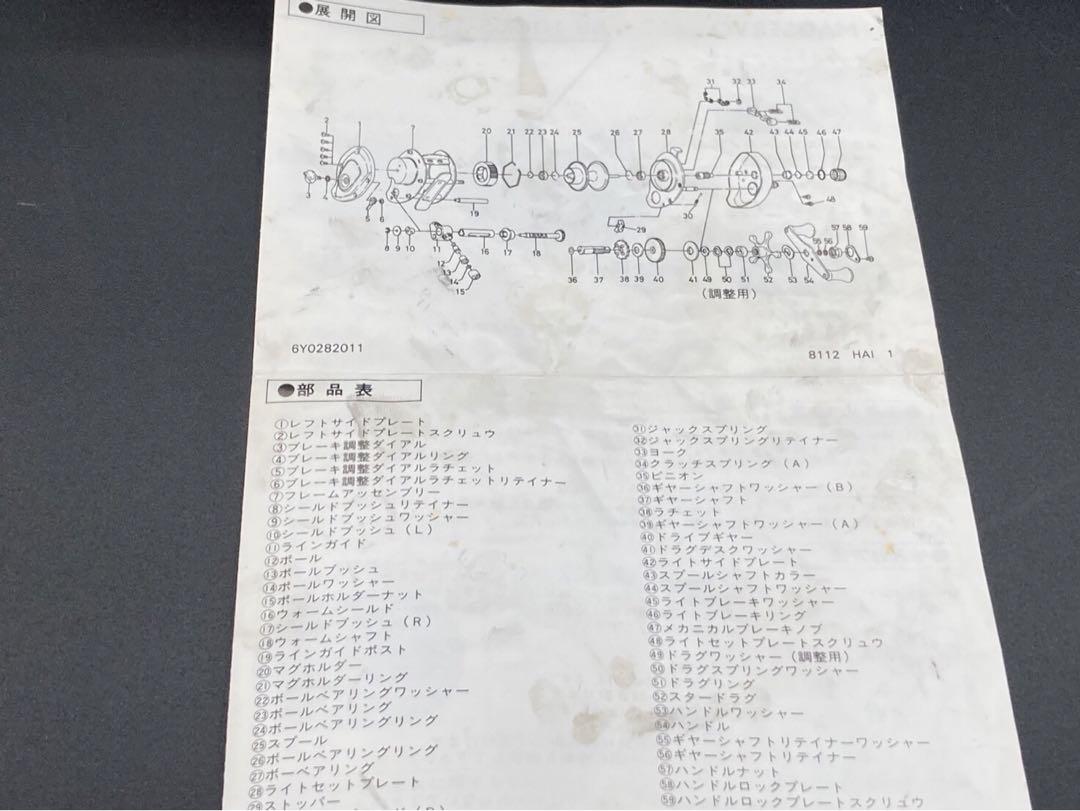 ●展開図
31 32 33 34
2 1 7 20 21 22 23 24 25 26 27 28 35 42 43 44 45 46 47
3 4 5 6 19 30 48
29
8 9 10 11 16 17 18
12
13
14
15
36 37 38 39 40 41 49 50 51 52 53 54 55 56 57 58 59
(調整用)
6Y0282011
8112 HAI 1
●部品表
①レフトサイドプレート
②レフトサイドプレートスクリュウ
③ブレーキ調整ダイアル
④ブレーキ調整ダイアルリング
⑤ブレーキ調整ダイアルラチェット
⑥ブレーキ調整ダイアルラチェットリテイナー
⑦フレームアッセンブリー
⑧シールドブッシュリテイナー
⑨シールドブッシュワッシャー
⑩シールドブッシュ(L)
⑪ラインガイド
⑫ポール
⑬ポールブッシュ
⑭ポールワッシャー
⑮ポールホルダーナット
⑯ウォームシールド
⑰シールドブッシュ(R)
⑱ウォームシャフト
⑲ラインガイドポスト
⑳マグホルダー
㉑マグホルダーリング
㉒ボールベアリングワッシャー
㉓ボールベアリング
㉔ボールベアリングリング
㉕スプール
㉖ボールベアリングリング
㉗ボーベアリング
㉘ライトセットプレート
㉙ストッパー
㉛ジャックスプリング
㉜ジャックスプリングリテイナー
㉝ヨーク
㉞クラッチスプリング(A)
㉟ピニオン
㊱ギヤーシャフトワッシャー(B)
㊲ギヤーシャフト
㊳ラチェット
㊴ギヤーシャフトワッシャー(A)
㊵ドライブギヤー
㊶ドラグデスクワッシャー
㊷ライトサイドプレート
㊸スプールシャフトカラー
㊹スプールシャフトワッシャー
㊺ライトブレーキワッシャー
㊻ライトブレーキリング
㊼メカニカルブレーキノブ
㊽ライトセットプレートスクリュウ
㊾ドラグワッシャー(調整用)
㊿ドラグスプリングワッシャー
51ドラグリング
52スタードラグ
53ハンドルワッシャー
54ハンドル
55ギヤーシャフトリテイナーワッシャー
56ギヤーシャフトリテイナー
57ハンドルナット
58ハンドルロックプレート
59ハンドルロックプレートスクリュウ